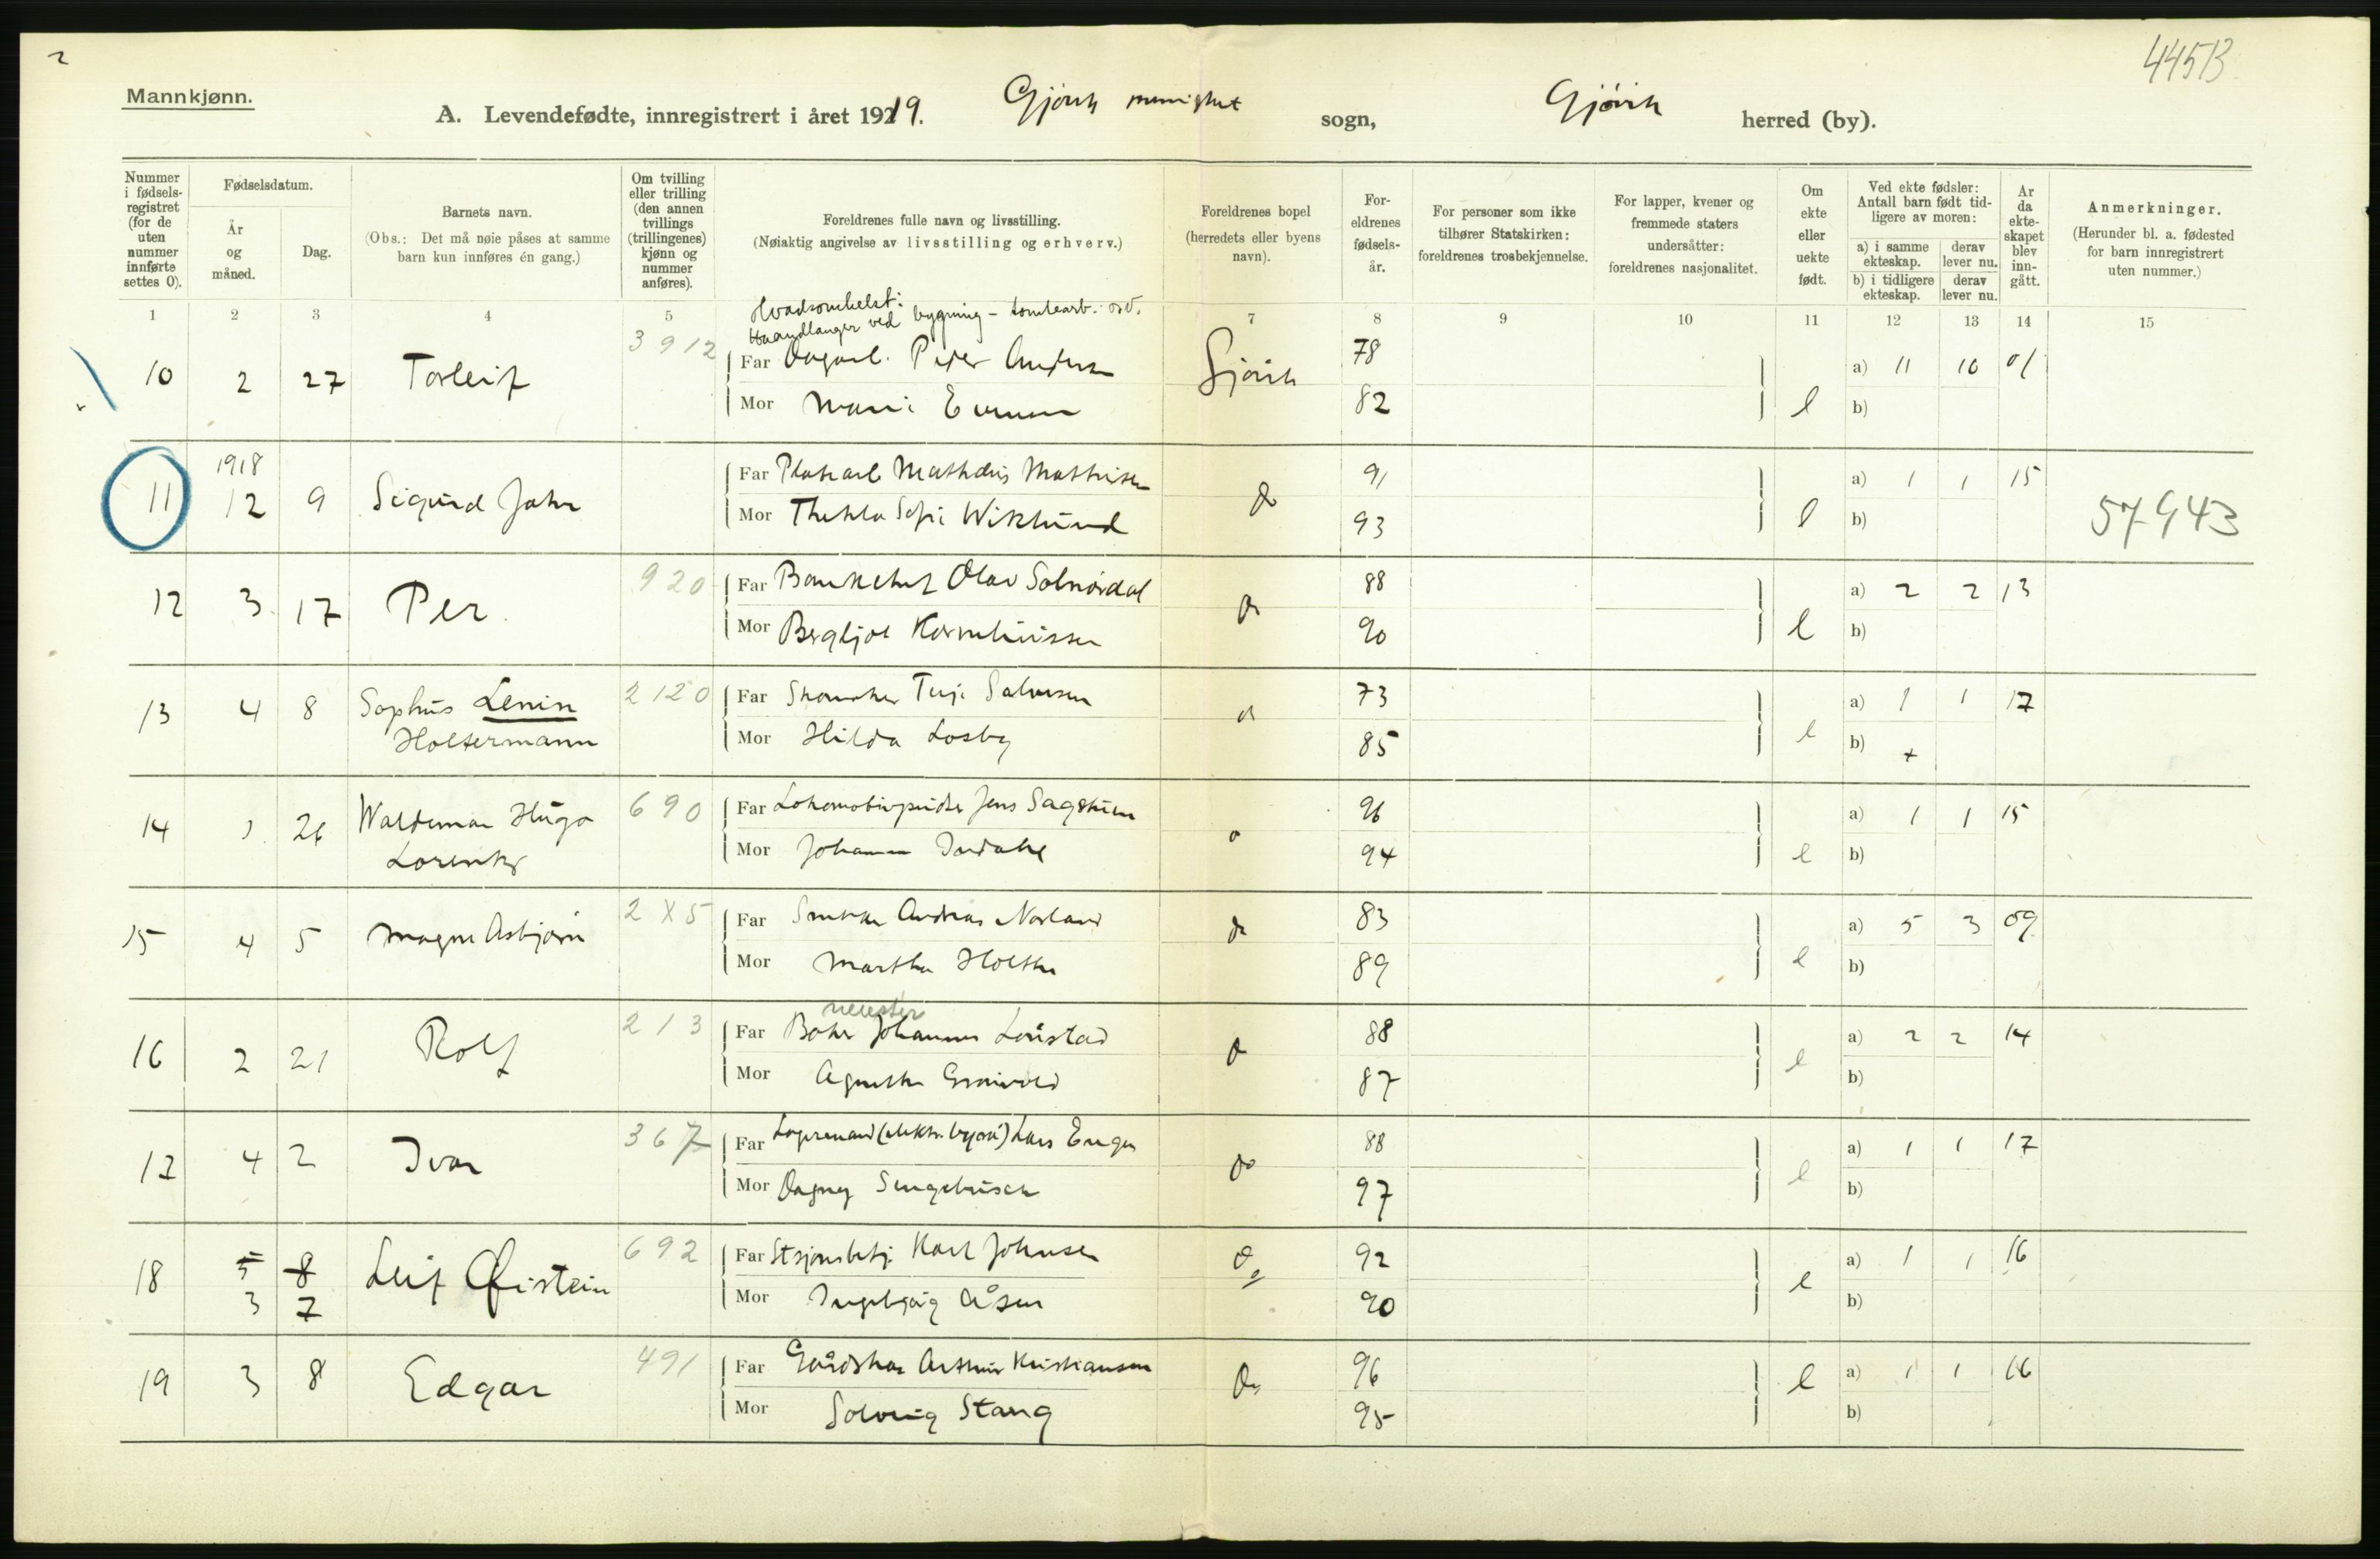 2
4451B
Mannkjønn.
A. Levendefødte, innregistrert i året 1919. Gjøvik sogn, Gjøvik herred (by).
Nummer i fødsels-registret (for de uten nummer innførte settes 0).
Fødselsdatum.
År og måned.
Dag.
Barnets navn.
(Obs.: Det må nøie påses at samme barn kun innføres én gang.)
Om tvilling eller trilling (den annen tvillings (trillingenes) kjønn og nummer anføres).
Foreldrenes fulle navn og livsstilling.
(Nøiaktig angivelse av livsstilling og erhverv.)
Foreldrenes bopel (herredets eller byens navn).
For-eldrenes fødsels-år.
For personer som ikke tilhører Statskirken: foreldrenes trosbekjennelse.
For lapper, kvener og fremmede staters undersåtter: foreldrenes nasjonalitet.
Om ekte eller uekte født.
Ved ekte fødsler: Antall barn født tid-ligere av moren:
a) i samme ekteskap.
derav lever nu.
b) i tidligere ekteskap.
derav lever nu.
År da ekte-skapet blev inn-gått.
Anmerkninger.
(Herunder bl. a. fødested for barn innregistrert uten nummer.)
1 2 3 4 5 7 8 9 10 11 12 13 14 15
Hvadsomhelst:
Haandlanger ved bygning - tomtearb. osv.
10 2 27 Torleif 3912 Far Dagarb. Peder Gjøvik 78 a) 11 10 01
Mor Marie 82 e b)
1918
11 12 9 Sigurd John Far Mathæus Mathisen do 91 a) 1 1 15
Mor Thekla Sofie Wiklund 93 e b) 57943
12 3 17 Per 920 Far Olav Solnørdal do 88 a) 2 2 13
Mor Bergljot 90 e b)
13 4 8 Sophus Lenin 2120 Far Skomaker Terje Salvesen 73 a) 1 1 17
Holtermann Mor Hilda Losby 85 e b) +
14 1 26 Waldemar Hugo 690 Far Lokomotivpudser Jens Sagstuen 96 a) 1 1 15
Lorentz Mor Johanne 94 e b)
15 4 5 Magne Asbjørn 2X5 Far Andreas Norland do 83 a) 5 3 09
Mor Martha Holthe 89 e b)
16 2 21 Rolf 213 Far Johannes 88 a) 2 2 14
Mor Agnethe 87 e b)
17 4 2 Ivar 367 Far Lars Enger do 88 a) 1 1 17
Mor Dagny 97 e b)
18 5 8 Leif Øistein 692 Far Karl Johnsen do 92 a) 1 1 16
3 7 Mor Ingebjørg Åsen 90 e b)
19 3 8 Edgar 491 Far Gårdskar Arthur Kristiansen do 96 e a) 1 1 16
Mor Solveig Stang 95 b)